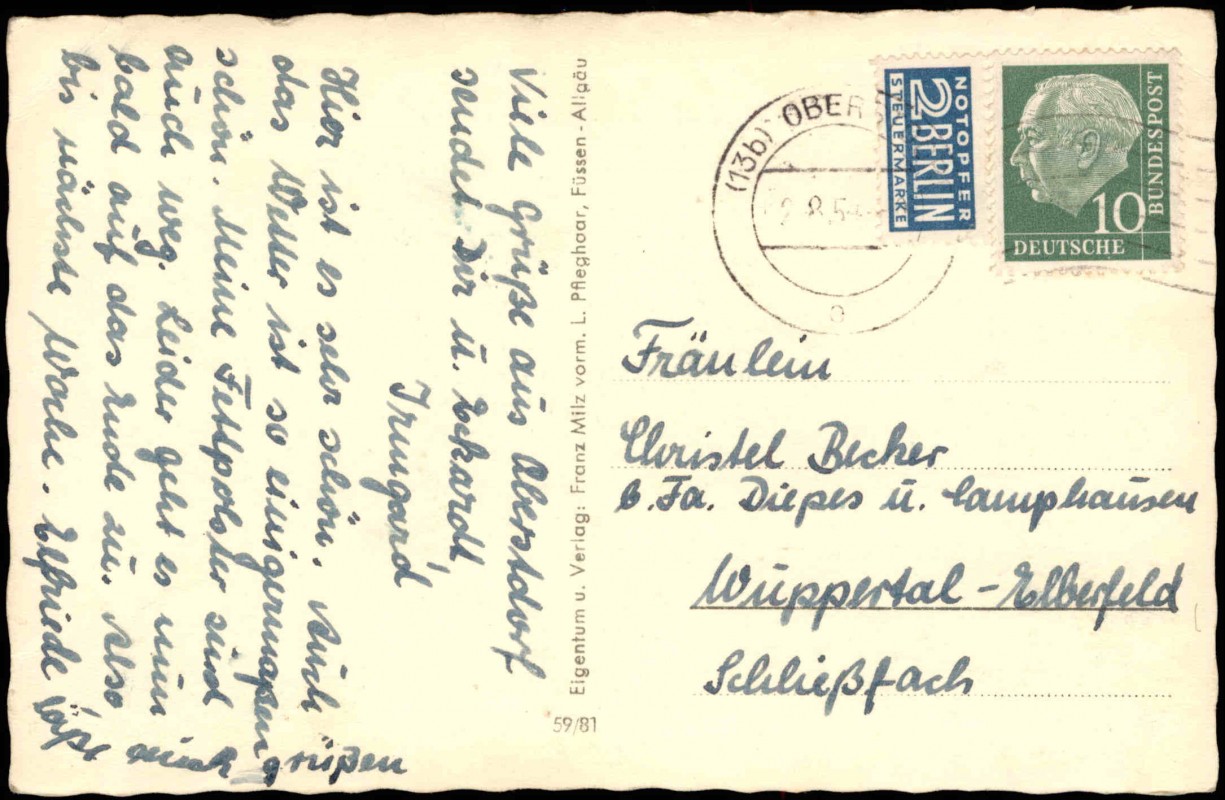 Viele Grüße aus Oberstdorf
sendet Dir u. Ekardt
Irmgard
Hier ist es sehr schön. Auch
das Wetter ist so einigermaßen
schön. Meine Fettpolster sind
auch weg. Leider geht es nun
bald auf das Ende zu. Also
bis nächste Woche. Elfriede läßt auch grüßen
Eigentum u. Verlag: Franz Milz vorm. L. Pfleghaar, Füssen-Allgäu
59/81
(13b) OBERS
8.5
NOTOPFER
2 BERLIN
STEUERMARKE
BUNDESPOST
10
DEUTSCHE
Fräulein
Christel Becker
b. Fa. Diepes u. Camphausen
Wuppertal-Elberfeld
Schließfach